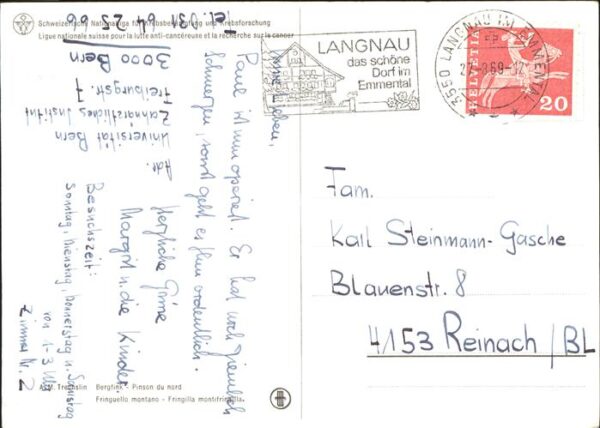 Schweizerische Nationalliga für Krebsbekämpfung und Krebsforschung
Ligue nationale suisse pour la lutte anti-cancéreuse et la recherche sur le cancer
LANGNAU
das schöne
Dorf im
Emmental
3550 LANGNAU IM EMMENTAL
HELVETIA
20
Fam.
Karl Steinmann-Gasche
Blauenstr. 8
4153 Reinach/BL
Lieben,
ist nun operiert. Er hat noch ziemlich
Schmerzen, sonst geht es ihm ordentlich.
Herzliche Grüsse
Margrit u. die Kinder.
Adr.
Universität Bern
Zahnärztliches Institut
Freiburgstr. 7
3000 Bern
Tel. 031 64 25 66
Besuchszeit:
Sonntag, Dienstag, Donnerstag u. Samstag
von 1-3 Uhr
Zimmer Nr. 2
Bergfink · Pinson du nord
Fringuello montano · Fringilla montifringilla